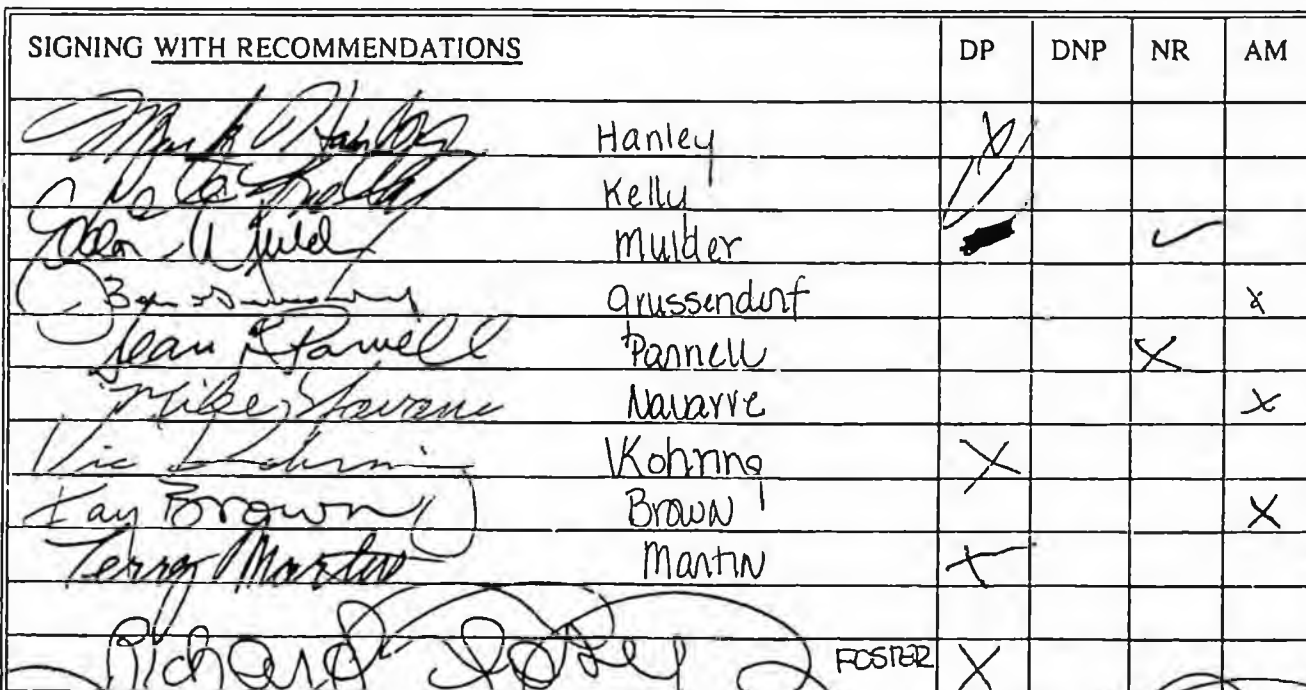 SIGNING WITH RECOMMENDATIONS DP DNP NR AM
Mark Hanley Hanley X
Kelly Kelly
Mulder ✓
Grussendorf x
Sean R Parnell Parnell X
Mike Navarre Navarre X
Vic Kohring Kohring X
Kay Brown Brown X
Terry Martin Martin X
Richard Foster FOSTER X